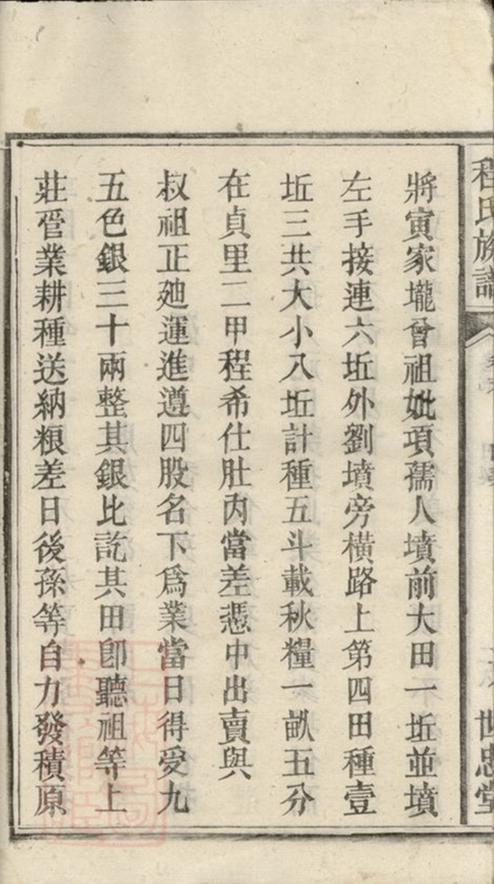 程氏族譜
世忠堂
將寅家壠曾祖妣項孺人墳前大田一坵並墳
左手接連六坵外劉墳旁橫路上第四田種壹
坵三共大小八坵計種五斗載秋糧一畝五分
在貞里二甲程希仕肚內當差憑中出賣與
叔祖正廸運進遵四股名下爲業當日得受九
五色銀三十兩整其銀比訖其田卽聽祖等上
莊管業耕種送納粮差日後孫等自力發積原